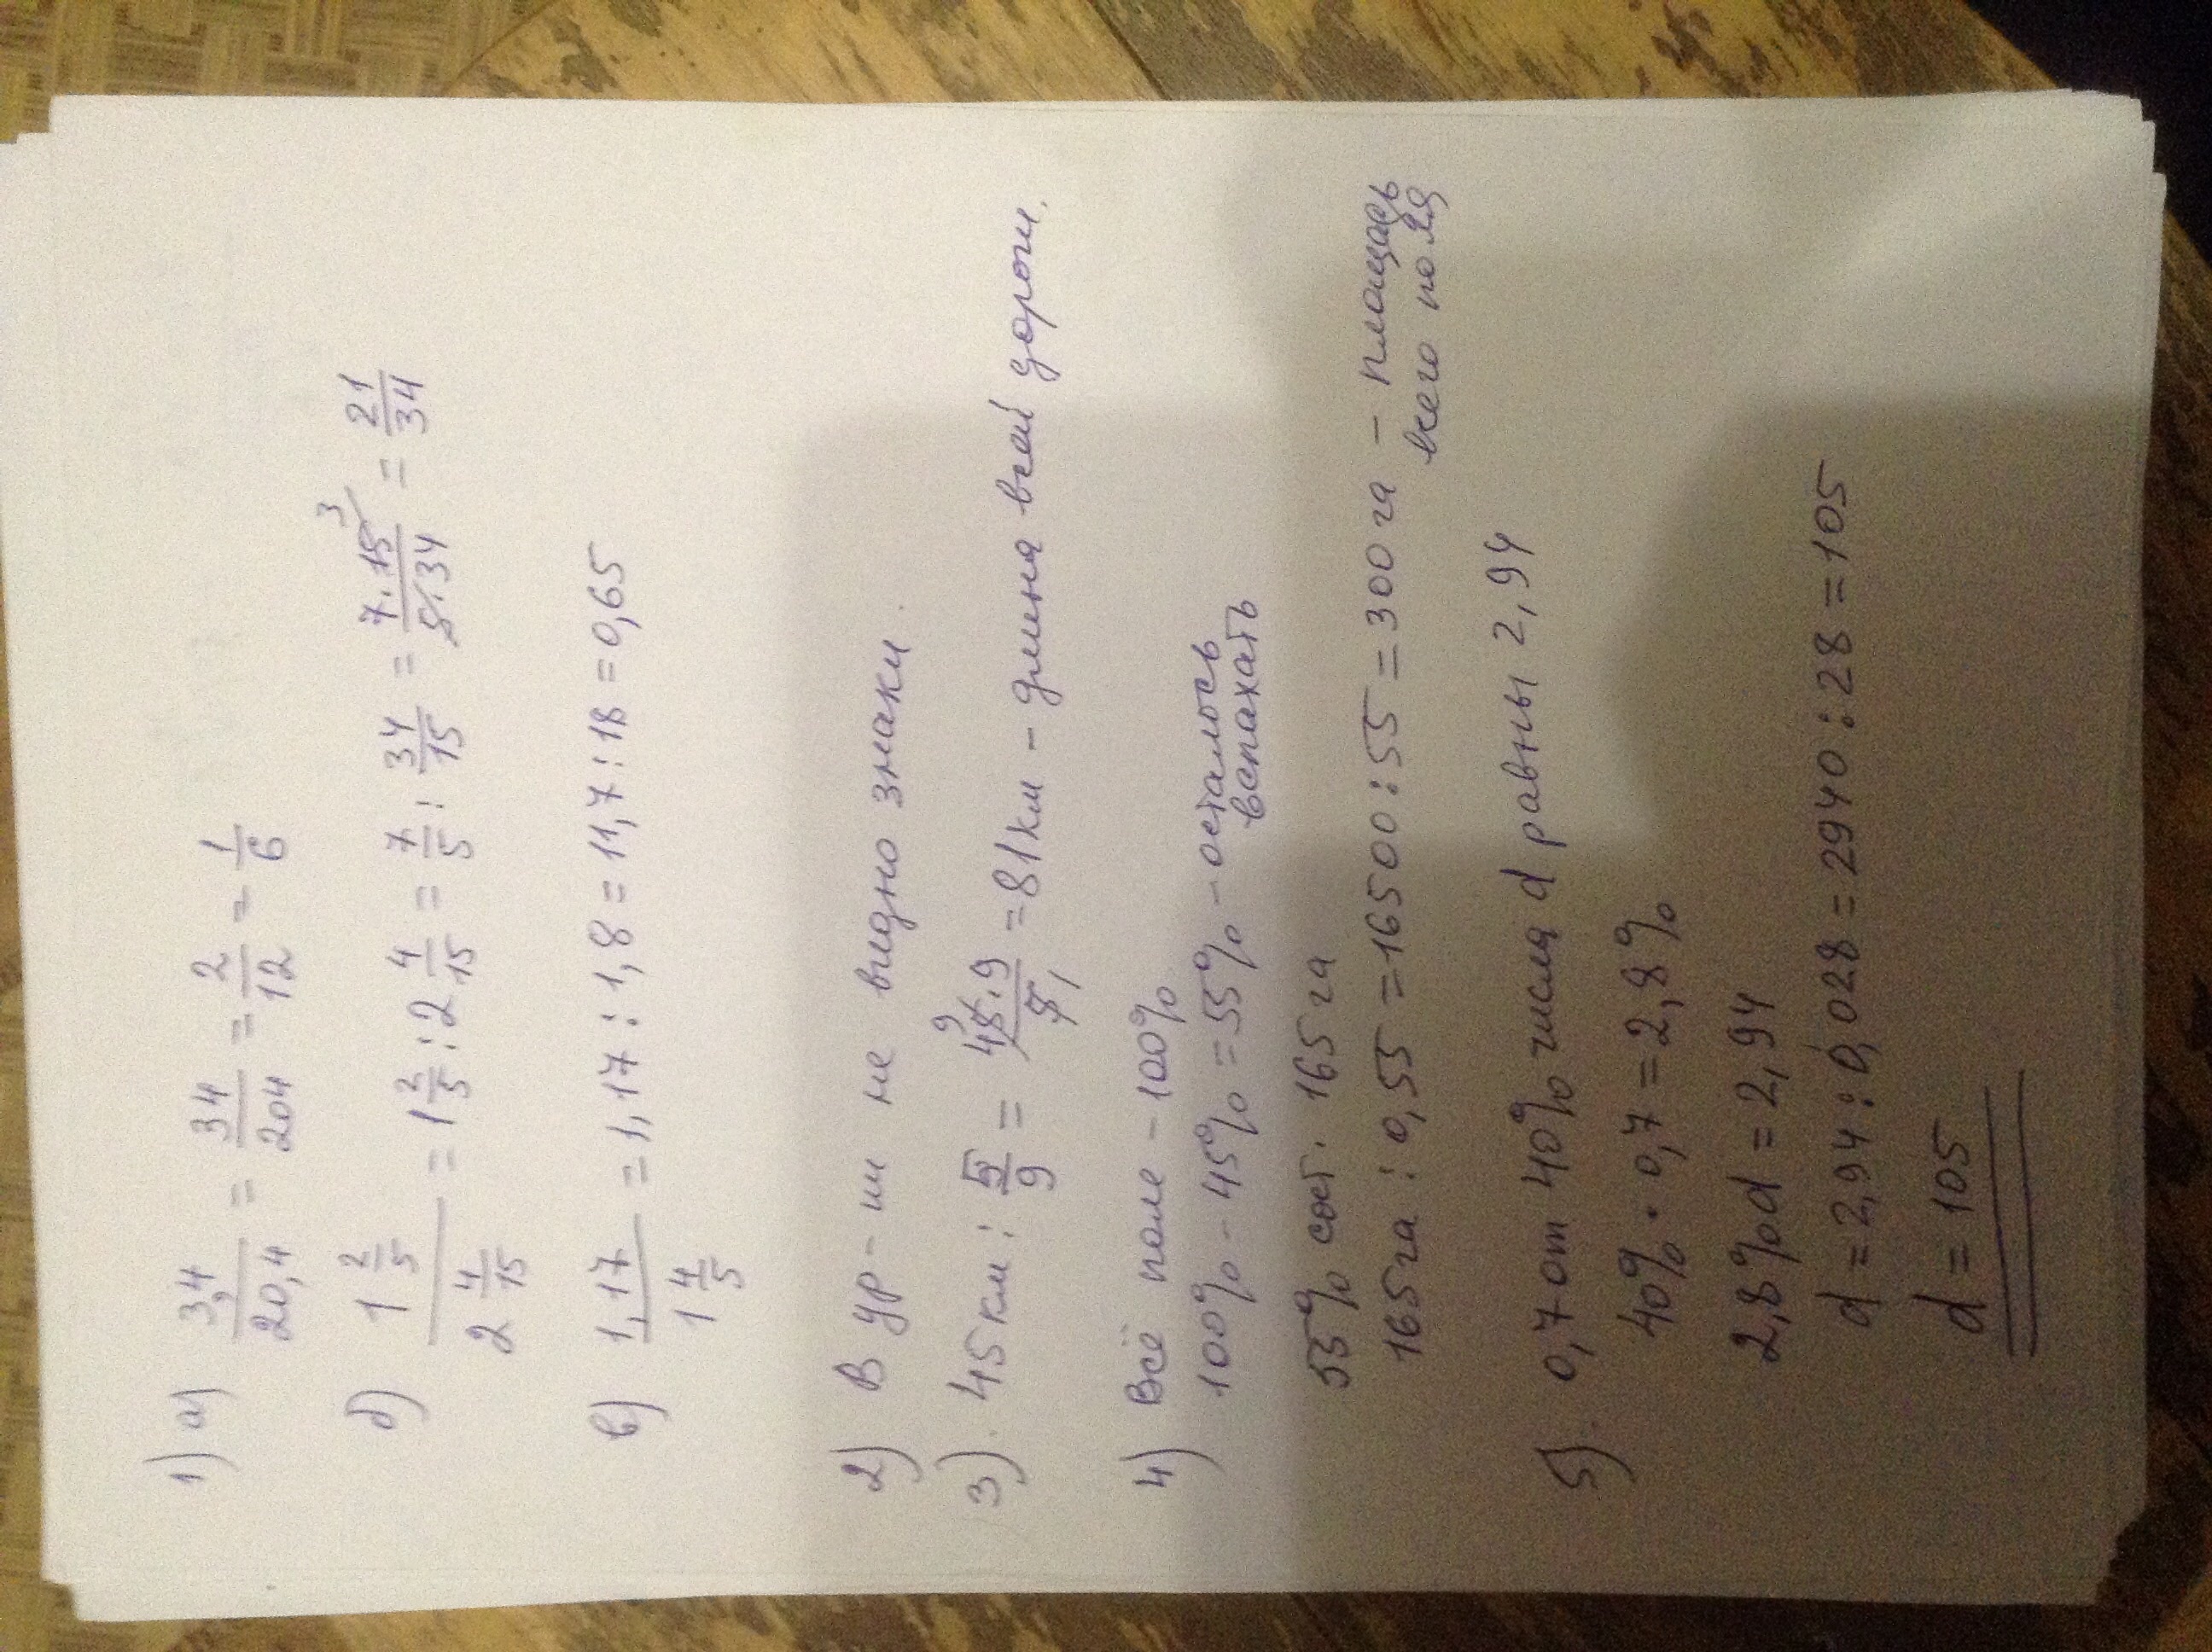 1) а) 3,4/20,4 = 34/204 = 2/12 = 1/6
б) 1 2/5 / 2 4/15 = 1 2/5 : 2 4/15 = 7/5 : 34/15 = 7·15 3/5·34 = 21/34
в) 1,17 / 1 4/5 = 1,17 : 1,8 = 11,7 : 18 = 0,65
2) В ур-ии не видно знаки.
3). 45 км : 5/9 = 45 9·9/5 1 = 81 км - длина всей дороги.
4) Всё поле - 100%
100% - 45% = 55% - осталось
вспахать
55% сост. 165 га
165 га : 0,55 = 16500 : 55 = 300 га - площадь
всего поля
5). 0,7 от 40% числа d равны 2,94
40% · 0,7 = 2,8%
2,8% d = 2,94
d = 2,94 : 0,028 = 2940 : 28 = 105
d = 105